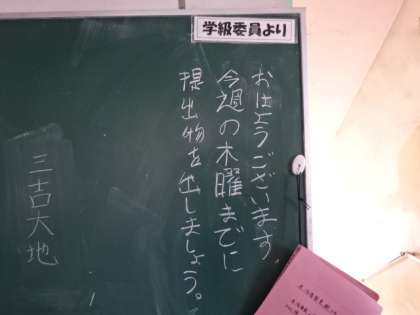 学級委員より
おはようございます。
今週の木曜までに
提出物を出しましょう。
三吉大地